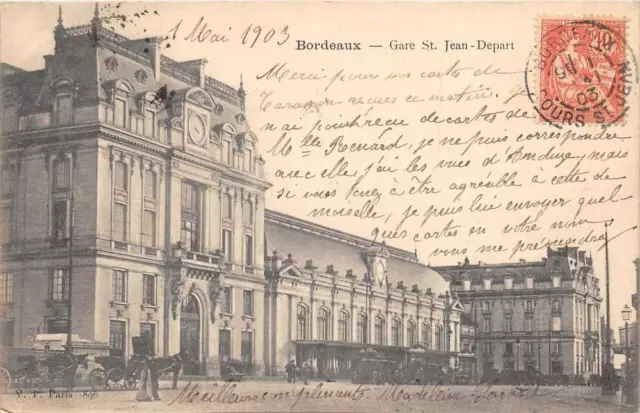 1 Mai 1903
Bordeaux — Gare St. Jean-Depart
Merci pour vos cartes de
Tarascon recues ce matin. Je
n'ai point recu de cartes de
Mlle Renard, je ne puis correspondre
avec elle, j'ai les vues d'Anduze, mais
si vous tenez à être agréable à cette de-
moiselle, je puis lui envoyer quel-
ques cartes en votre nom
vous me prendrez
Meilleurs compliments. Madeleine
V. P. Paris 896
BORDEAUX
COURS ST JEAN
03
10